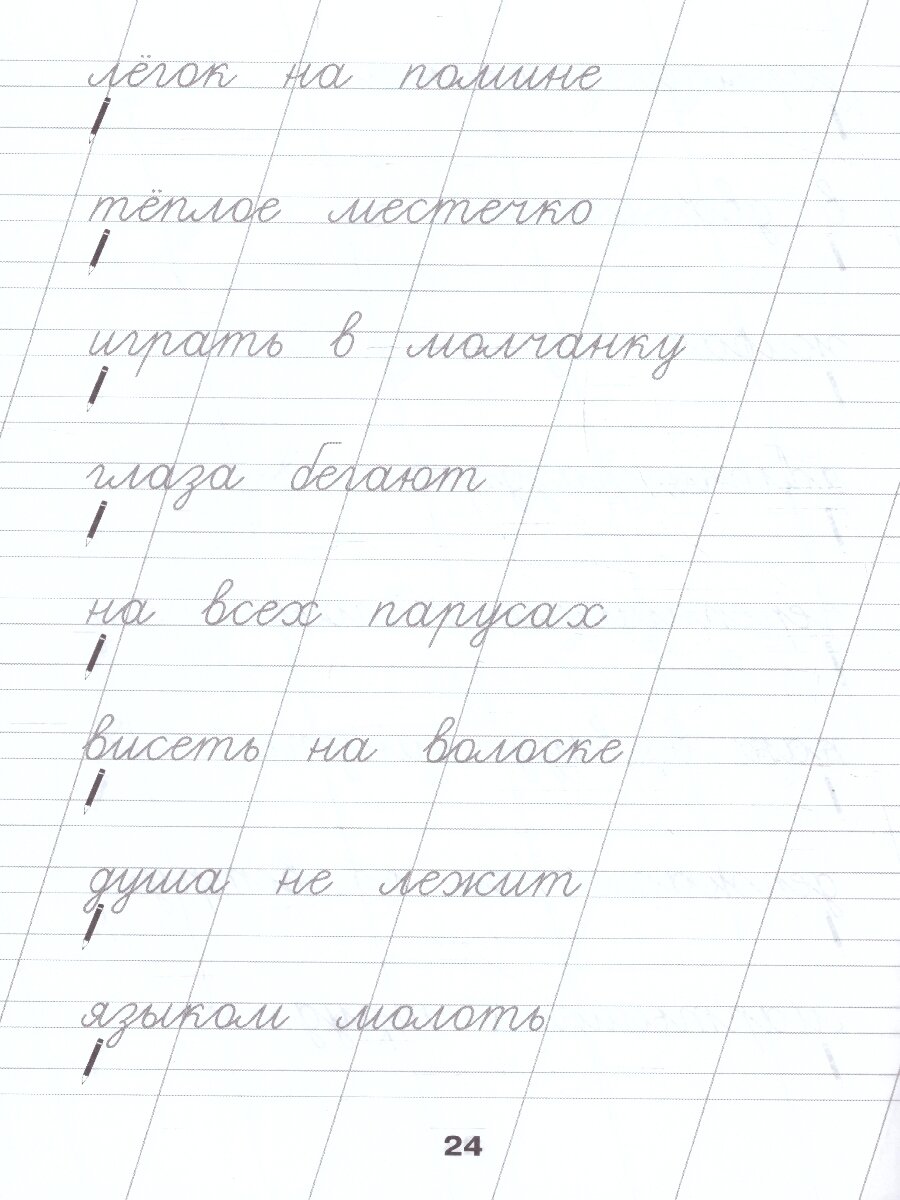 лёгок на помине
тёплое местечко
играть в молчанку
глаза бегают
на всех парусах
висеть на волоске
душа не лежит
языком молоть
24